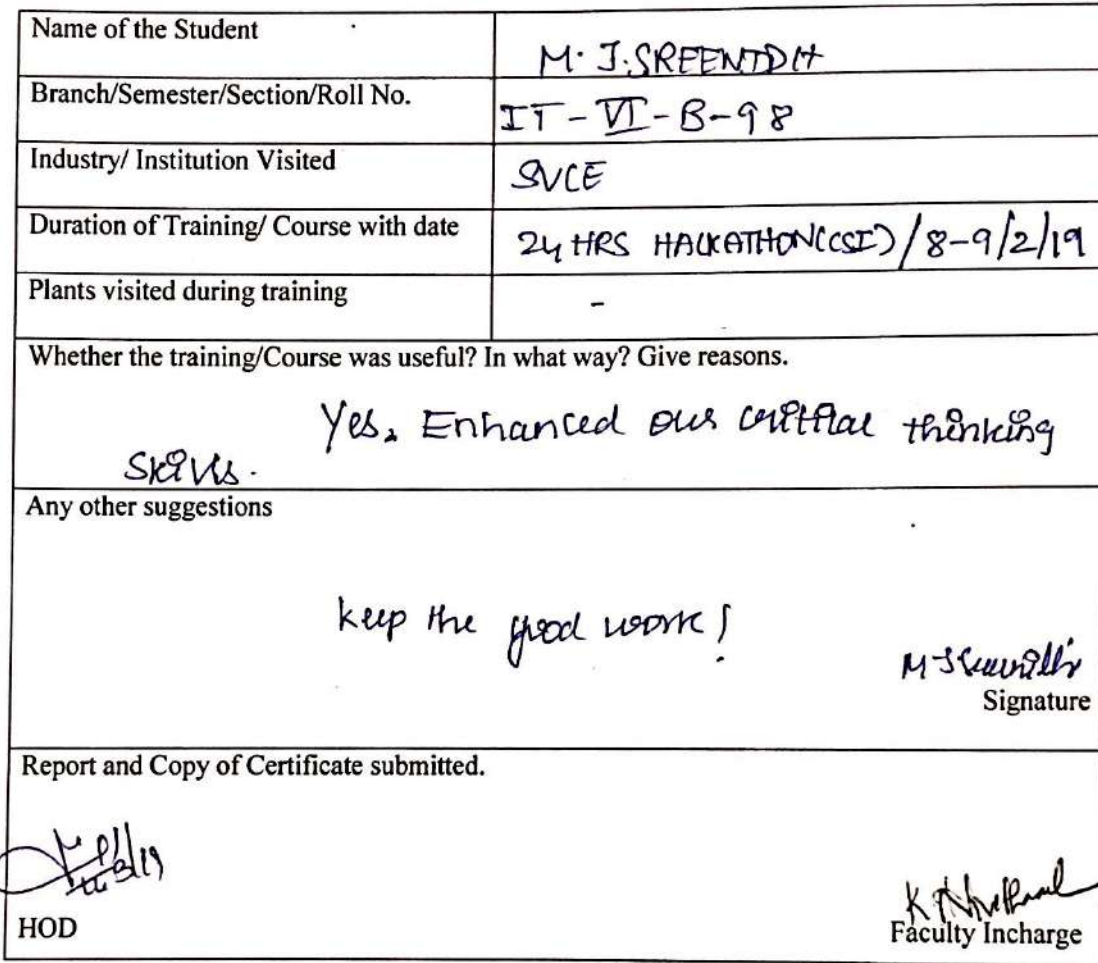 Name of the Student
M. J. SREENIDH
Branch/Semester/Section/Roll No.
IT - VI - B - 98
Industry/ Institution Visited
SVCE
Duration of Training/ Course with date
24 HRS HACKATHON(CSI) / 8-9/2/19
Plants visited during training
-
Whether the training/Course was useful? In what way? Give reasons.
Yes, Enhanced our critical thinking
skills.
Any other suggestions
keep the good work!
Signature
Report and Copy of Certificate submitted.
HOD
Faculty Incharge